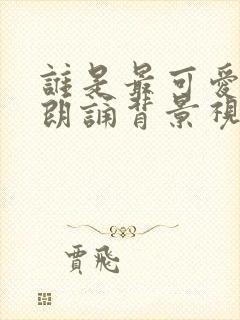 誰是最可愛
朗誦背景視
賈飛